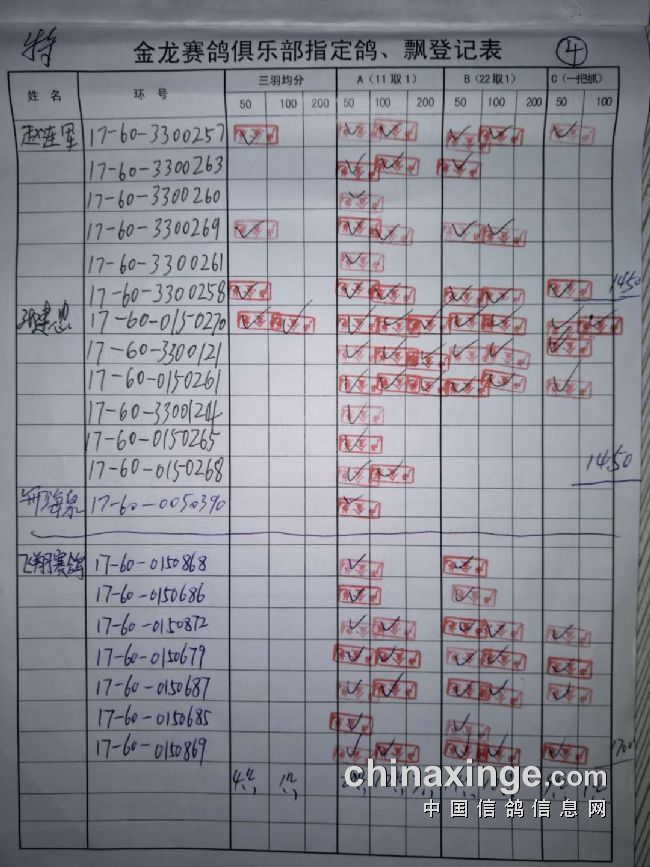 特
金龙赛鸽俱乐部指定鸽、飘登记表
4
姓 名 环 号 三羽均分 A (11取1) B (22取1) C (一把抓)
50 100 200 50 100 200 50 100 200 50 100
赵连军 17-60-3300257
17-60-3300263
17-60-3300260
17-60-3300269
17-60-3300261
17-60-3300258 1450
17-60-0150270
17-60-3300121
17-60-0150261
17-60-3300124
17-60-0150265
17-60-0150268 1450
17-60-0050390
飞翔赛鸽 17-60-0150868
17-60-0150686
17-60-0150872
17-60-0150679
17-60-0150687
17-60-0150685
17-60-0150869
chinaxinge.com
中国信鸽信息网